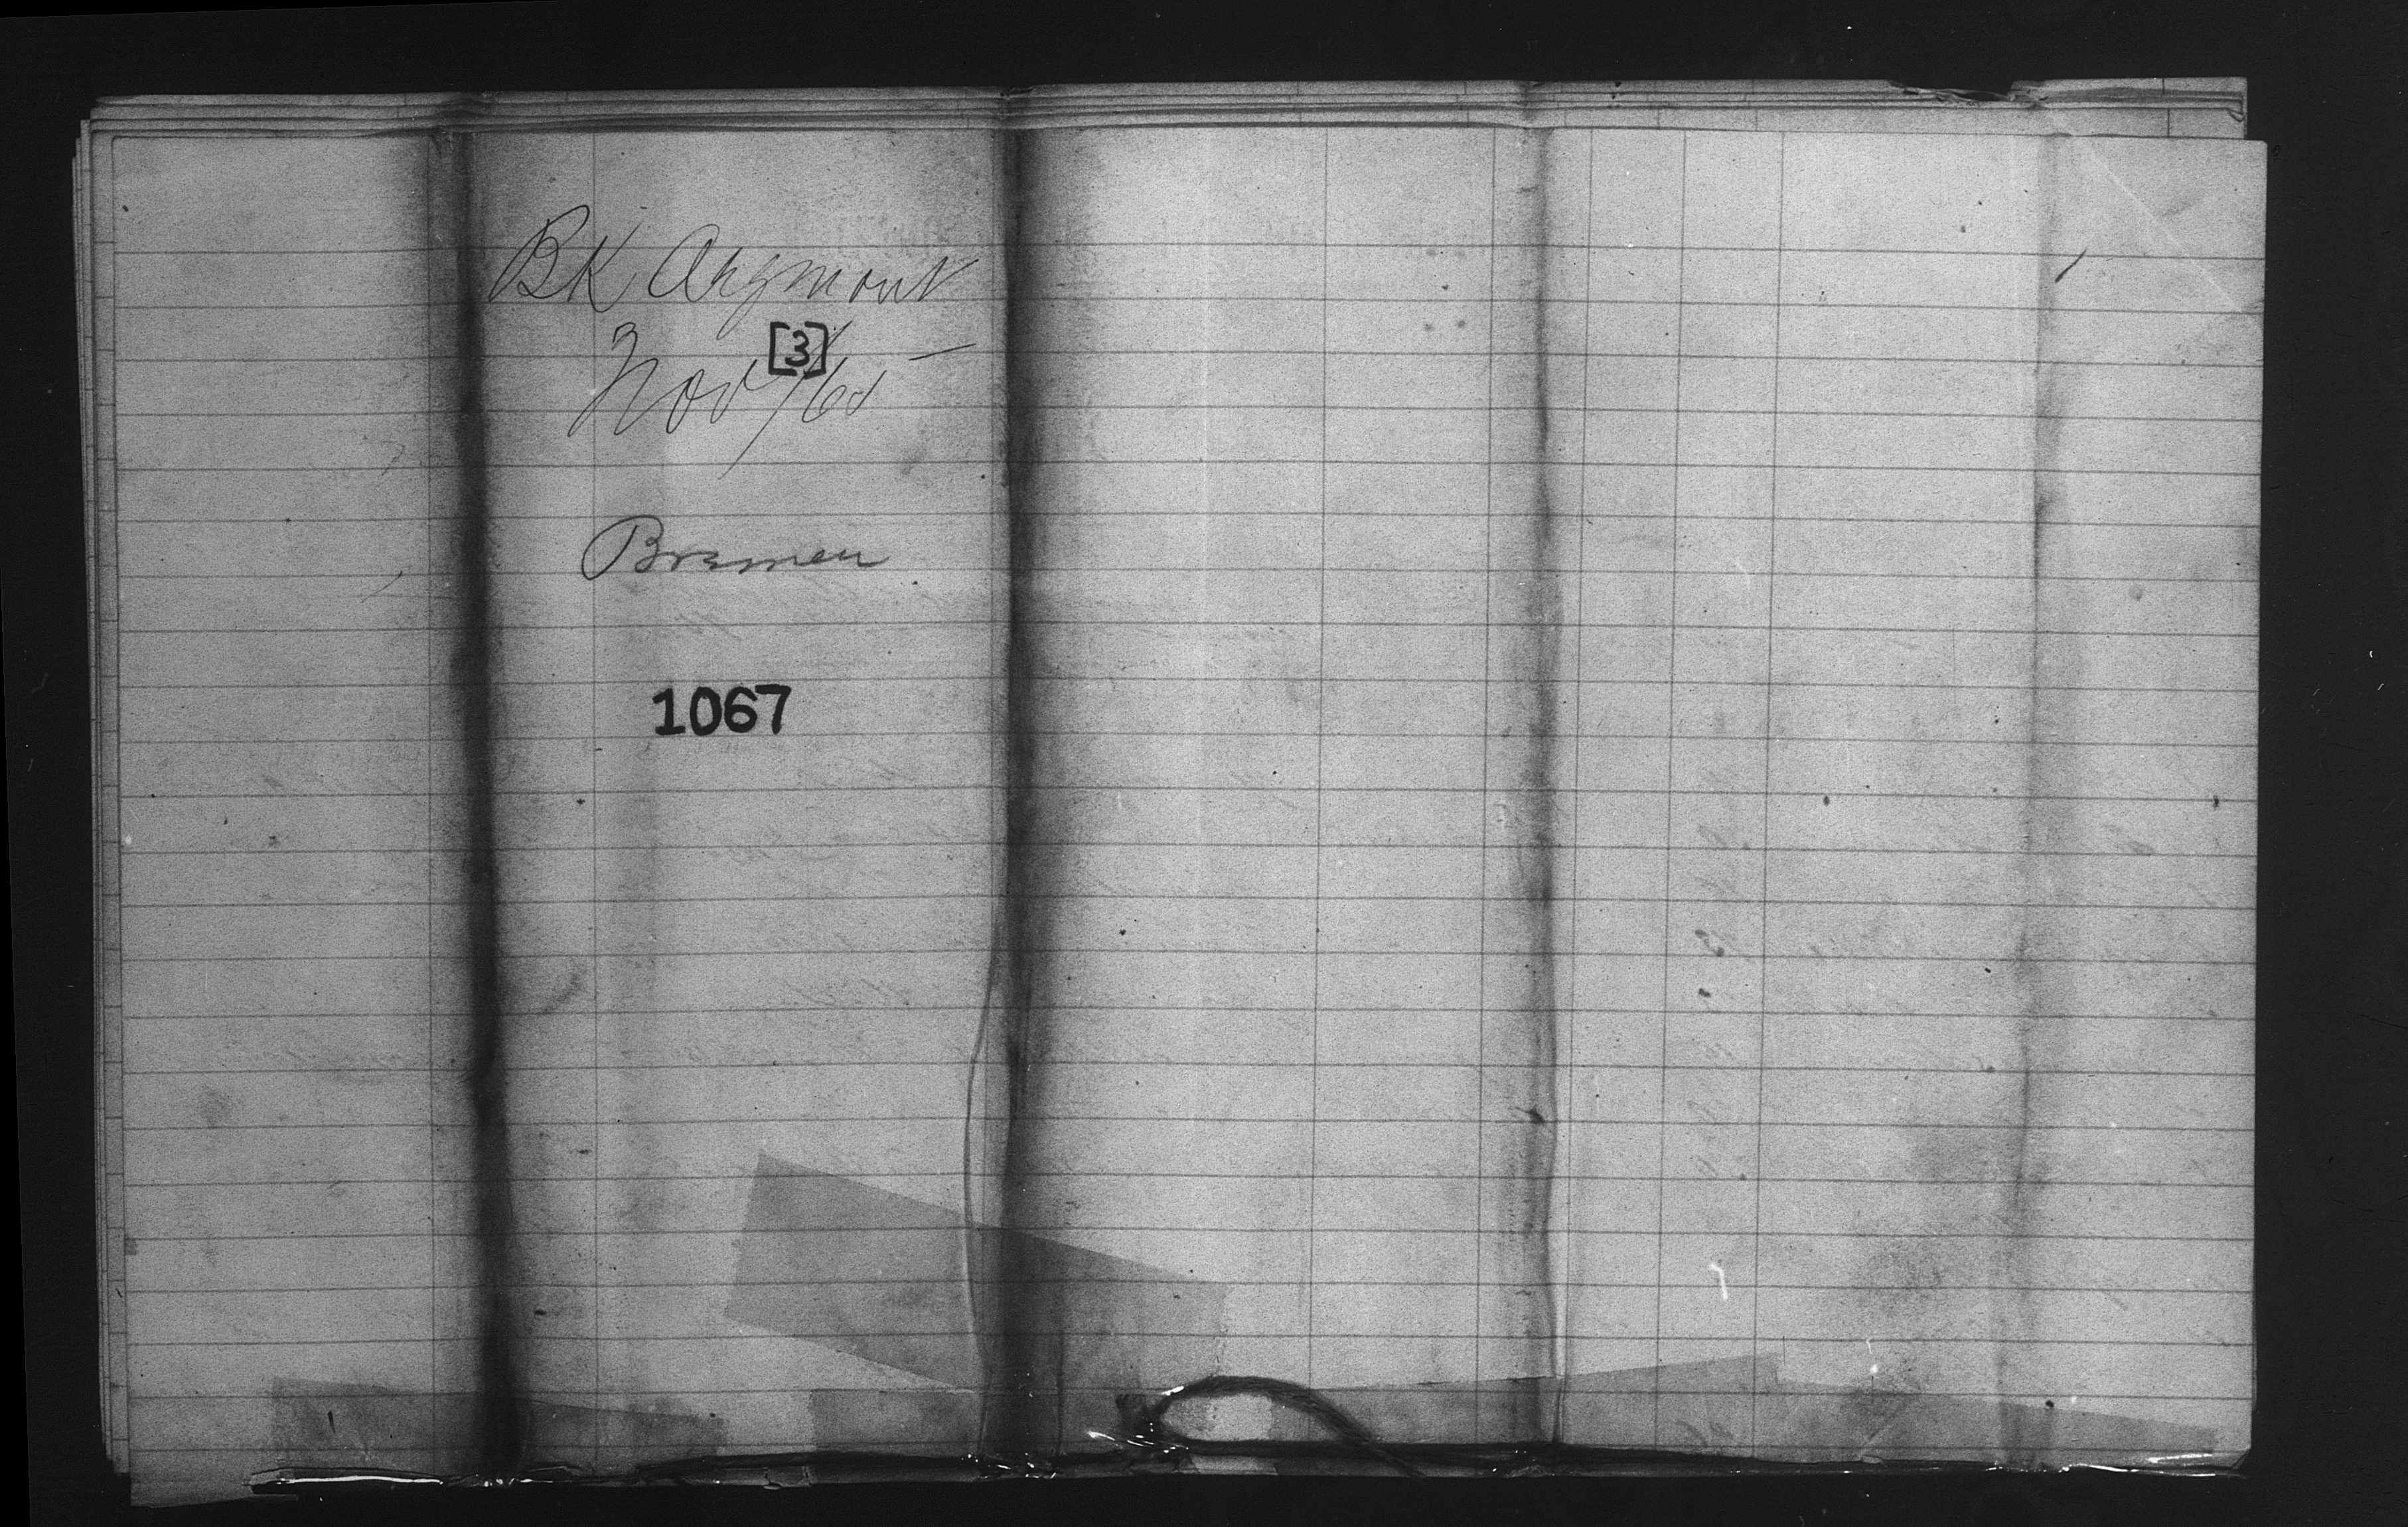 BK Argmont
[3]
Nov /65
Bremen
1067